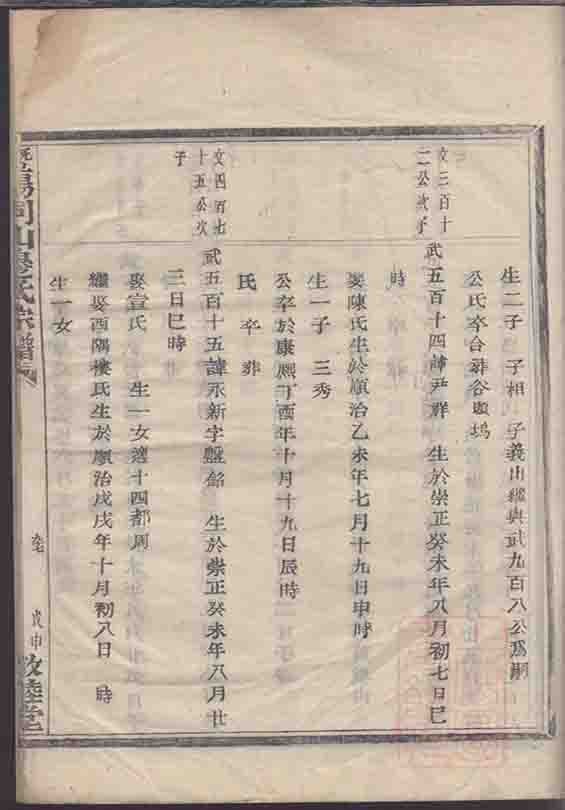 生二子 子相 子義出繼與武九百八公爲嗣
公氏卒合葬谷
文三百十
二公次子
武五百十四諱尹群 生於崇正癸未年八月初七日巳
時
娶陳氏生於順治乙未年七月十九日申時
生一子 三秀
公卒於康熙丁酉年十月十九日辰時
氏 卒 葬
文四百七
十五公次
子
武五百十五諱永新字盤銘 生於崇正癸未年八月廿
三日巳時
娶宣氏 生一女適十四都周
繼娶酉隅樓氏生於順治戊戌年十月初八日 時
生一女
氏宗譜
戊申
敦睦堂